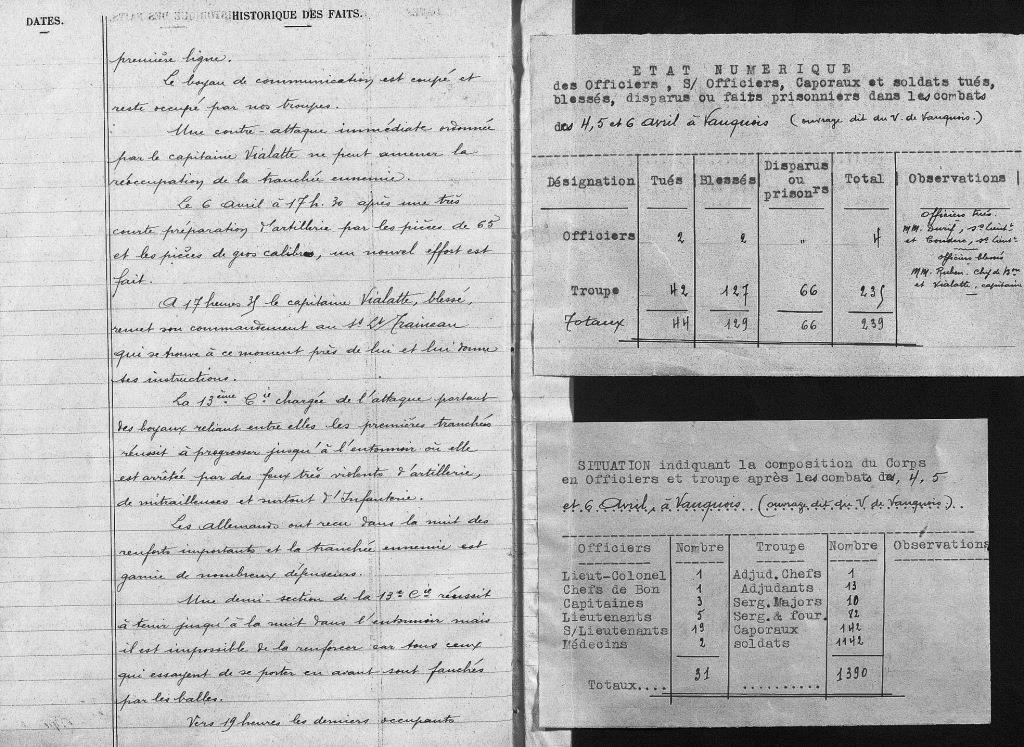 DATES.
HISTORIQUE DES FAITS.
première ligne.
Le boyau de communication est coupé et
reste occupé par nos troupes.
Une contre-attaque immédiate ordonnée
par le capitaine Vialatte ne peut amener la
réoccupation de la tranchée ennemie.
Le 6 avril à 17 h. 30 après une très
courte préparation d'artillerie par les pièces de 65
et les pièces de gros calibres, un nouvel effort est
fait.
A 17 heures 35 le capitaine Vialatte, blessé,
remet son commandement au St Lt Traineau
qui se trouve à ce moment près de lui et lui donne
ses instructions.
La 13ème Cie chargée de l'attaque partant
des boyaux reliant entre elles les premières tranchées
réussit à progresser jusqu'à l'entonnoir où elle
est arrêtée par des feux très violents d'artillerie,
de mitrailleuses et surtout d'Infanterie.
Les allemands ont reçu dans la nuit des
renforts importants et la tranchée ennemie est
garnie de nombreux défenseurs.
Une demi-section de la 13e Cie réussit
à tenir jusqu'à la nuit dans l'entonnoir mais
il est impossible de la renforcer car tous ceux
qui essayent de se porter en avant sont fauchés
par les balles.
Vers 19 heures les derniers occupants
ETAT NUMERIQUE
des Officiers , S/ Officiers, Caporaux et soldats tués,
blessés, disparus ou faits prisonniers dans les combats
des 4, 5 et 6 Avril à Vauquois (ouvrage dit du V. de Vauquois.)
Désignation Tués Blessés Disparus ou prisonrs Total Observations
Officiers 2 2 " 4 Officiers tués.
MM. , s/s lieutt
et , s/s lieutt
officiers blessés
MM. Ruben. Chef de Bon
et Vialatte, capitaine
Troupe 42 127 66 235
Totaux 44 129 66 239
SITUATION indiquant la composition du Corps
en Officiers et troupe après les combats des, 4, 5
et 6 Avril, à Vauquois.. (ouvrage dit du V. de Vauquois)..
Officiers Nombre Troupe Nombre Observations
Lieut-Colonel 1 Adjud.Chefs 1
Chefs de Bon 1 Adjudants 13
Capitaines 3 Serg.Majors 10
Lieutenants 5 Serg.& four. 82
S/Lieutenants 19 Caporaux 142
Médecins 2 soldats 1142
Totaux.... 31 .......... 1390